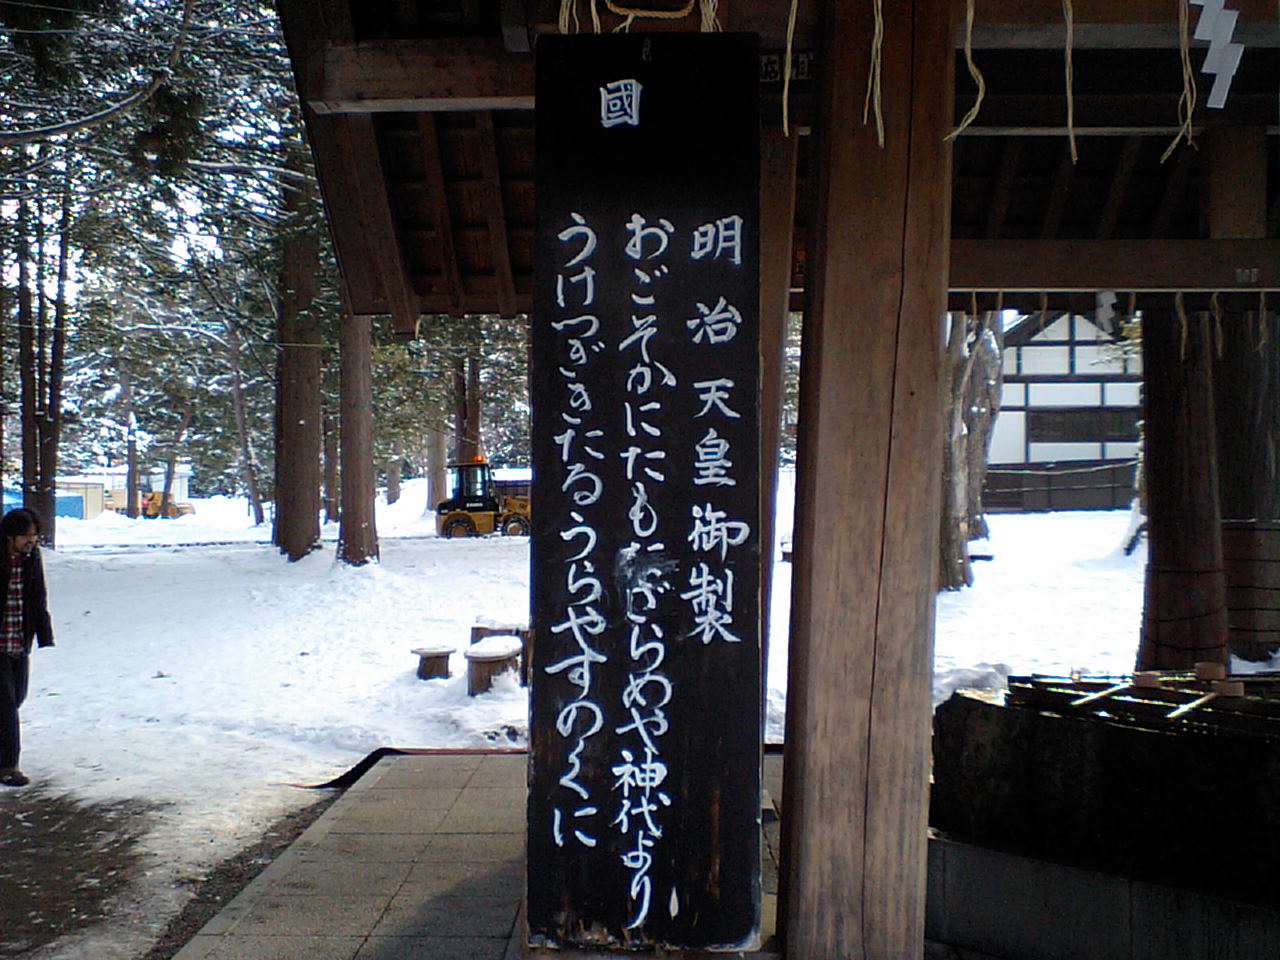 國
明治天皇御製
おごそかにたもたざらめや神代より
うけつぎきたるうらやすのくに